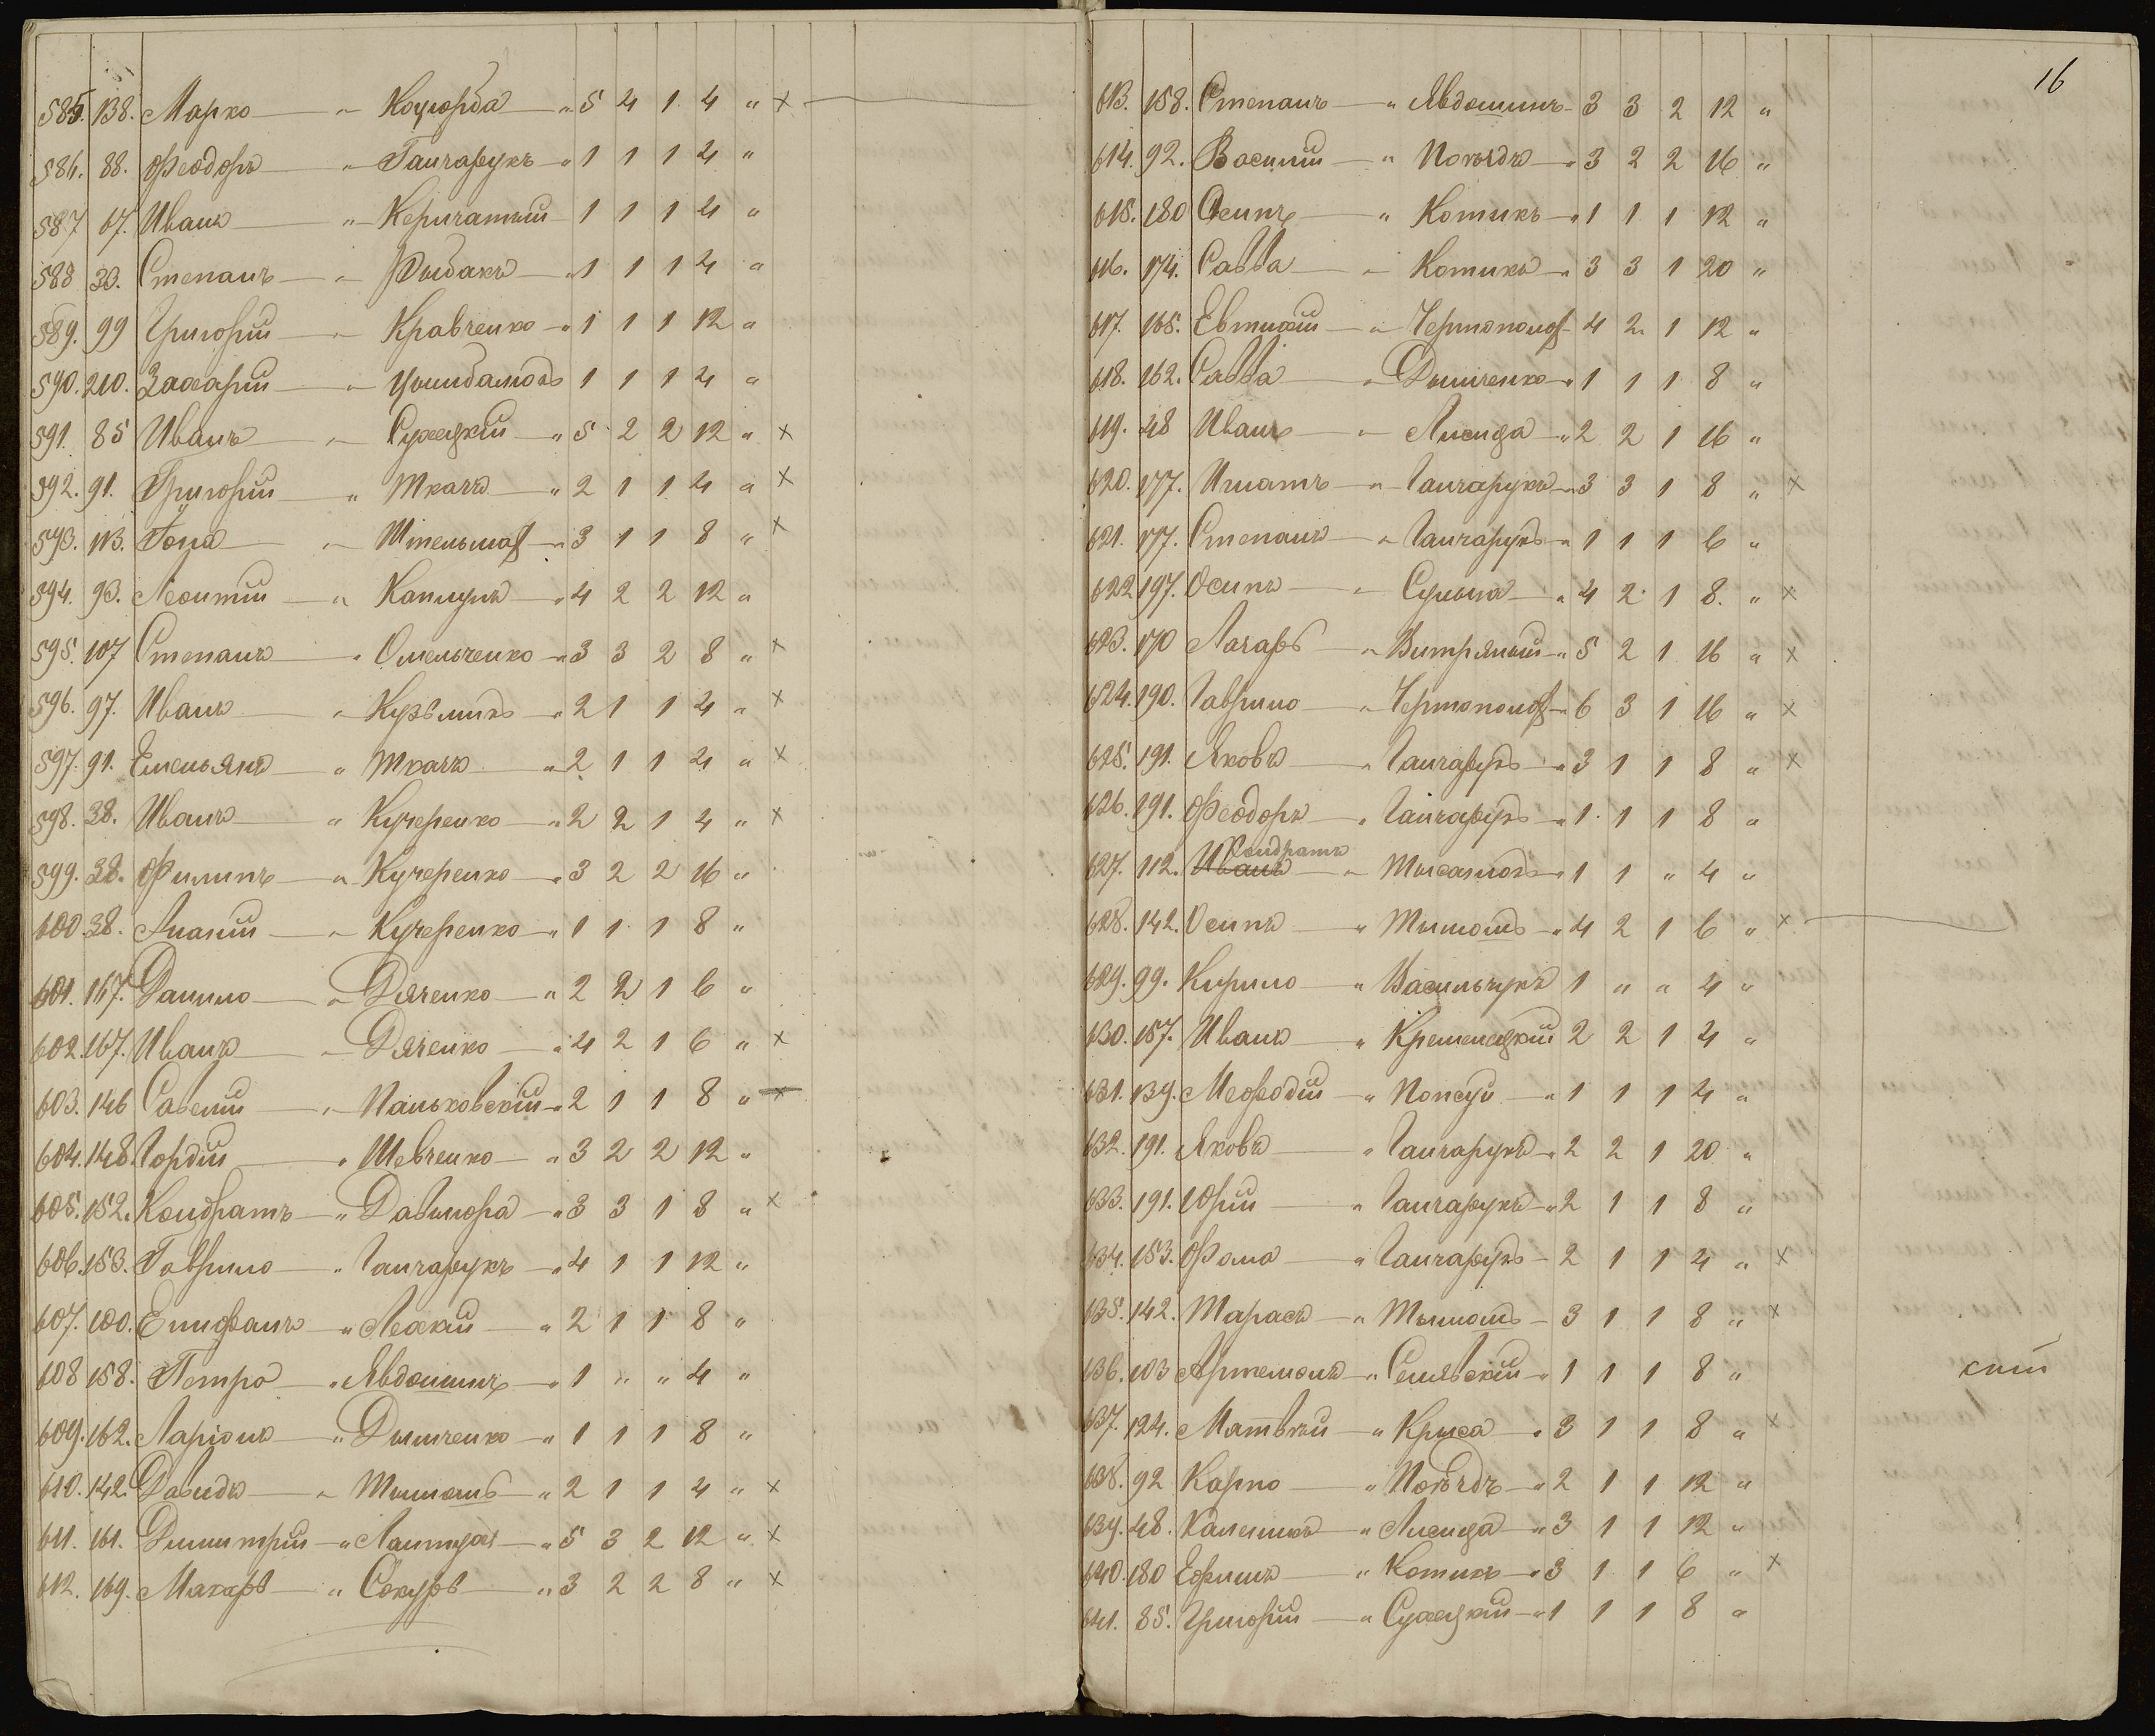 585. 138. Марко — „ — Коцюрба — „ 5 4 1 4 „ ×
586. 88. Феодоръ „ — Ганчарукъ — „ 1 1 1 4 „
587 67. Иванъ — „ — Керничатый — 1 1 1 4 „
588 30. Степанъ — „ — Рыбакъ — „ 1 1 1 4 „
589. 99 Григорій — „ — Кравченко — „ 1 1 1 12 „
590. 210. Захарій — „ — 1 1 1 4 „
591. 85 Иванъ — „ — Сухецкій — „ 5 2 2 12 „ ×
592. 91. Григорій — „ — Ткачъ — „ 2 1 1 4 „ ×
593. 113. — „ — Штельмах — „ 3 1 1 8 „ ×
594. 93. Леонтій — „ Каплунъ — „ 4 2 2 12 „
595. 107 Степанъ — „ Омельченко — „ 3 3 2 8 „ ×
596. 97. Иванъ — „ Кузьминъ — „ 2 1 1 4 „ ×
597. 91. Емельянъ — „ Ткачъ — „ 2 1 1 4 „ ×
598. 38. Иванъ — „ Кучеренко — „ 2 2 1 4 „ ×
599. 38. Филипъ — „ Кучеренко — „ 3 2 2 16 „
600. 38. Ананій — „ — Кучеренко — „ 1 1 1 8 „
601. 167. Данило — „ Дяченко — „ 2 2 1 6 „
602. 167. Иванъ — „ — Дяченко — „ 4 2 1 6 „ ×
603. 146 Савелій — „ — Паньковскій — „ 2 1 1 8 „ ×
604. 148. Гордій — „ Шевченко — „ 3 2 2 12 „
605. 152. Кондратъ — „ Давыдюра — „ 3 3 1 8 „ ×
606. 153. Гаврило — „ Ганчарукъ — „ 4 1 1 12 „
607. 100. Епифанъ — „ Легкій — „ 2 1 1 8 „
608 158. Петро — „ Явдошинъ — „ 1 „ „ 4 „
609. 162. Ларіонъ — „ Дытченко — „ 1 1 1 8 „
610. 142. Давидъ — „ — Тытюнъ — „ 2 1 1 4 „ ×
611. 161. Димитрій — „ — 5 3 2 12 „ ×
612. 169. Макаръ — „ Сокуръ — „ 3 2 2 8 „ ×
16
613. 158. Степанъ — „ Явдошинъ — 3 3 2 12 „
614. 92. Василій — „ Погѣдъ — „ 3 2 2 16 „
615. 180 Осипъ — „ Котикъ — „ 1 1 1 12 „
616. 174. Савва — „ — Котикъ — „ 3 3 1 20 „
617. 165. Евтихій — „ — Чертополох — 4 2 1 12 „
618. 162. Савва — „ Дытченко — „ 1 1 1 8 „
619. 48 Иванъ — „ — Лисица — „ 2 2 1 16 „
620. 177. Игнатъ — „ — Ганчарукъ — „ 3 3 1 8 „ ×
621. 177. Степанъ — „ Ганчарукъ — „ 1 1 1 6 „
622 197. Осипъ — „ — Сулыма — „ 4 2 1 8. „ ×
623. 170 Лазаръ — „ Витряный — „ 5 2 1 16 „ ×
624. 190. Гаврило — „ Чертополох — „ 6 3 1 16 „ ×
625. 191. Яковъ — „ Ганчарукъ — „ 3 1 1 8 „ ×
626. 191. Феодоръ — „ Ганчарукъ — „ 1 1 1 8 „
Кондратъ
627. 112. Иванъ — „ — 1 1 „ 4 „
628. 142. Осипъ — „ Тытюнъ — „ 4 2 1 6 „ ×
629. 99. Кирило — „ Васильчукъ 1 „ „ 4 „
630. 157. Иванъ — „ Кременецкій 2 2 1 4 „
631. 139. Мефодій — „ Попсуй — „ 1 1 1 4 „
632. 191. Яковъ — „ Ганчарукъ — „ 2 2 1 20 „
633. 191. Юрій — „ Ганчарукъ — „ 2 1 1 8 „
634. 153. Фома — „ Ганчарукъ — 2 1 1 4 „ ×
635. 142. Тарасъ — „ Тытюнъ — 3 1 1 8 „ ×
636. 103 Артемонъ — „ Синявскій — „ 1 1 1 8 „ скій
637. 124. Матвѣй — „ Крыса — „ 3 1 1 8 „ ×
638. 92 Карпо — „ Погѣдъ — „ 2 1 1 12 „
639. 48. Калиникъ — „ Лисица — „ 3 1 1 12 „
640. 180 Ефимъ — „ Котикъ — „ 3 1 1 6 „ ×
641. 85. Григорій — „ Сухецкій — „ 1 1 1 8 „